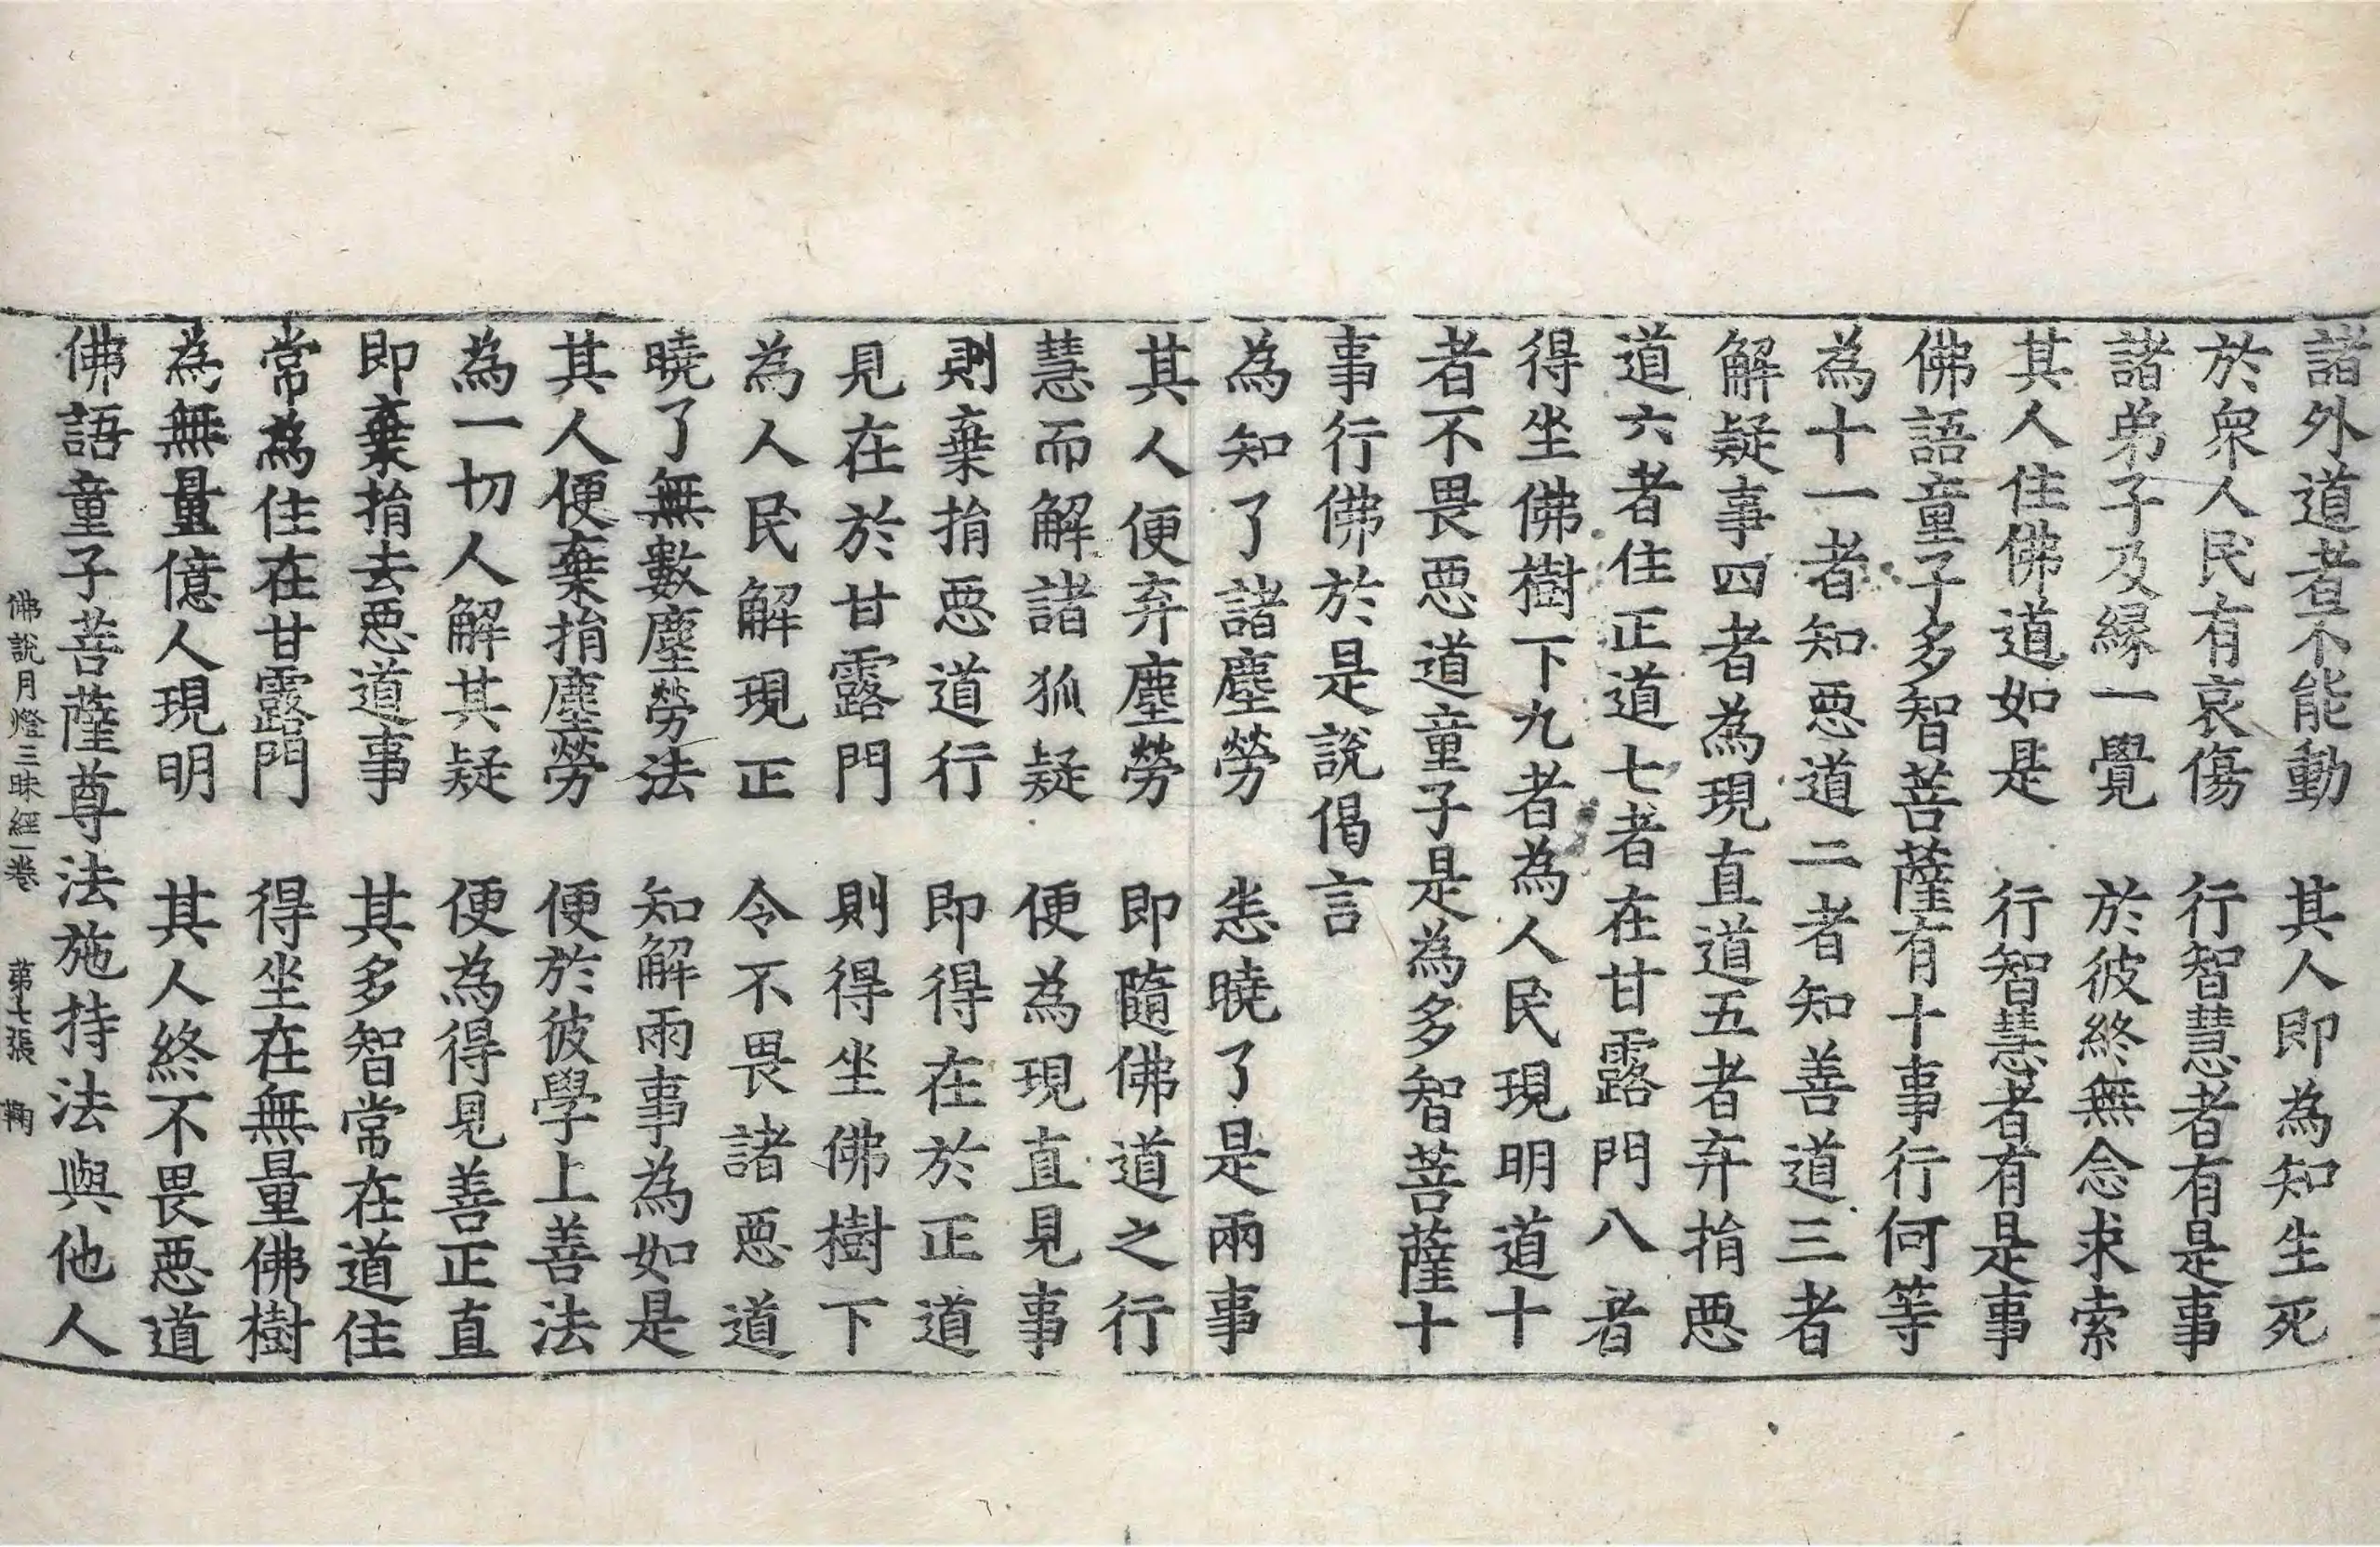 諸外道者不能動　其人即為知生死
於衆人民有哀傷　行智慧者有是事
諸弟子及縁一覺　於彼終無念求索
其人住佛道如是　行智慧者有是事
佛語童子多智菩薩有十事行何等
為十一者知惡道二者知善道三者
解疑事四者為現直道五者弃捐惡
道六者住正道七者在甘露門八者
得坐佛樹下九者為人民現明道十
者不畏惡道童子是為多智菩薩十
事行佛於是說偈言
為知了諸塵勞　悉曉了是兩事
其人便弃塵勞　即隨佛道之行
慧而解諸狐疑　便為現直見事
則棄捐惡道行　即得在於正道
見在於甘露門　則得坐佛樹下
為人民解現正　令不畏諸惡道
曉了無數塵勞法　知解兩事為如是
其人便棄捐塵勞　便於彼學上善法
為一切人解其疑　便為得見善正直
即棄捐去惡道事　其多智常在道住
常為住在甘露門　得坐在無量佛樹
為無量億人現明　其人終不畏惡道
佛語童子菩薩尊法施持法與他人
佛說月燈三昧經一卷　第七張　鞠